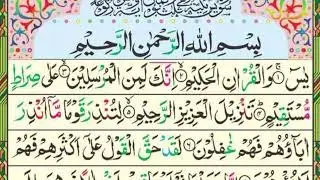 بِسْمِ اللهِ الرَّحْمٰنِ الرَّحِيْمِ
يٰسٓ ۚ﴿۱﴾ وَالْقُرْاٰنِ الْحَكِيْمِ ۙ﴿۲﴾ اِنَّكَ لَمِنَ الْمُرْسَلِيْنَ ۙ﴿۳﴾ عَلٰى صِرَاطٍ
مُّسْتَقِيْمٍ ؕ﴿۴﴾ تَنْزِيْلَ الْعَزِيْزِ الرَّحِيْمِ ۙ﴿۵﴾ لِتُنْذِرَ قَوْمًا مَّاۤ اُنْذِرَ
اٰبَآؤُهُمْ فَهُمْ غٰفِلُوْنَ ﴿۶﴾ لَقَدْ حَقَّ الْقَوْلُ عَلٰٓى اَكْثَرِهِمْ فَهُمْ